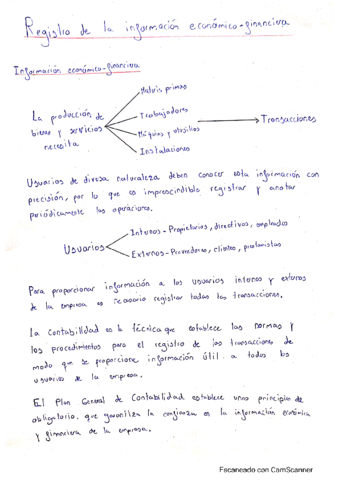 Registro de la información económico-financiera
Información económico-financiera
La producción de
bienes y servicios
necesita
Materis primas
Trabajadores
Máquias y utesilios
Instalaciones
Transacciones
Usuarios de divesa naturaleza deben conocer esta información con
precisión, por lo que es imprescindible registrar y anotar
periódicamente las operaciones.
Usuarios
Internos - Propietarios, directivos, empleados
Externos - Proveedores, clientes, prestamistas
Para proporcionar información a los usuarios internos y externos
de la empresa es necesario registrar todas las transacciones.
La Contabilidad es la técnica que establece las normas y
los procedimientos para el registro de las transacciones de
modo que se proporcione información útil a todos los
usuarios de la empresa.
El Plan General de Contabilidad establece unos principios de
obligatorio que garantiza la confianza en la información económica
y financiera de la empresa.
Escaneado con CamScanner